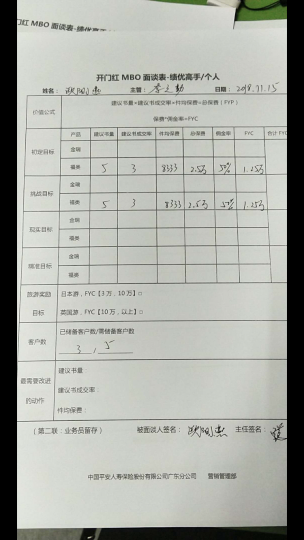 开门红 MBO 面谈表-绩优高手/个人
姓名: 欧阳惠 主管: 日期: 2018.11.15
价值公式 建议书量×建议书成交率×件均保费=总保费 (FYP)
保费*佣金率=FYC
产品 建议书量 建议书成交率 件均保费 总保费 佣金率 FYC 合计 FYC
初定目标 金瑞
福类 5 3 8333 2.5万 50% 1.25万
挑战目标 金瑞
福类 5 3 8333 2.5万 50% 1.25万
现实目标 金瑞
福类
金瑞
福类
旅游奖励 日本游, FYC【3万, 10万】□
目标 英国游, FYC【10万, 以上】□
客户数 已储备客户数/需储备客户数
3 , 5
最需要改进 建议书量:
建议书成交率:
的动作 件均保费:
(第二联: 业务员留存) 被面谈人签名: 欧阳惠 主任签名:
中国平安人寿保险股份有限公司广东分公司 营销管理部